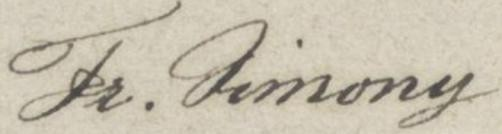 Fr. Simony